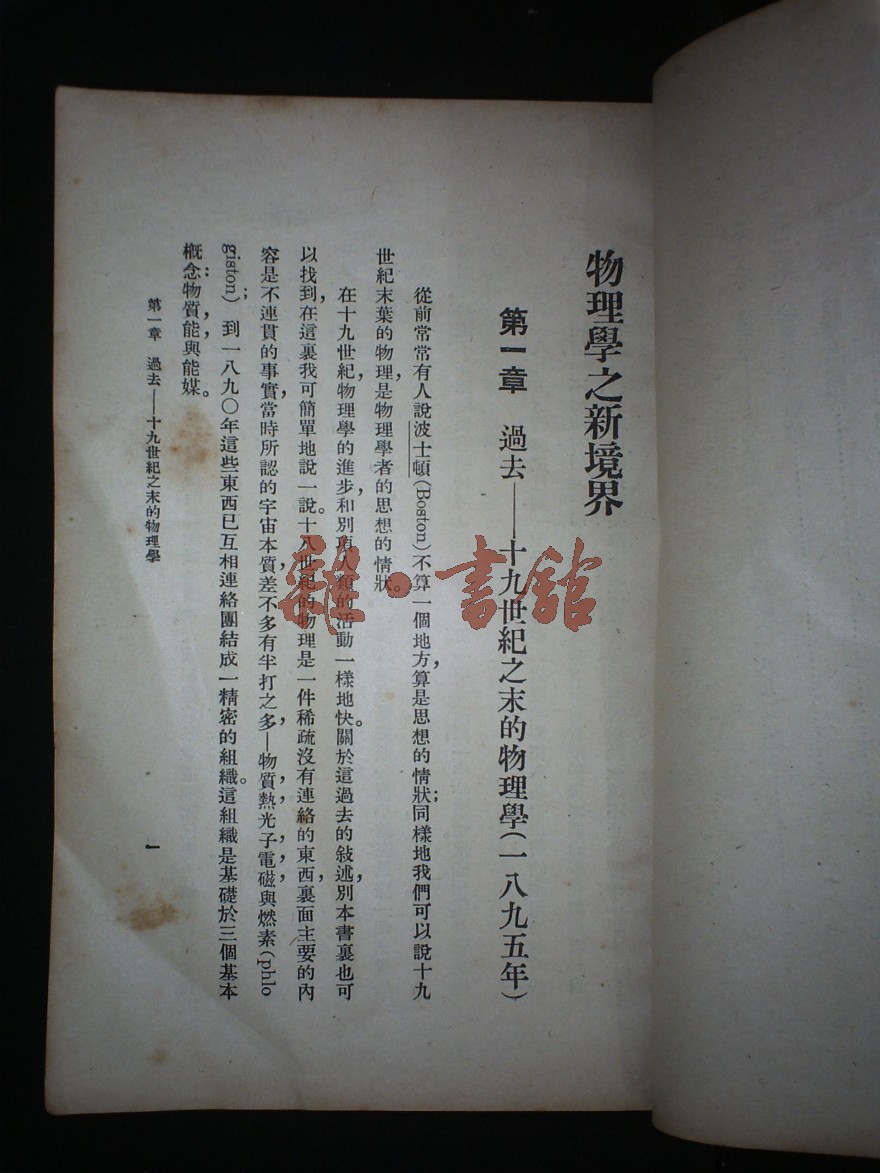 物理學之新境界
第一章 過去——十九世紀之末的物理學(一八九五年)
從前常常有人說波士頓(Boston)不算一個地方,算是思想的情狀;同樣地我們可以說十九
世紀末葉的物理,是物理學者的思想的情狀。
在十九世紀,物理學的進步,和別項人類的活動一樣地快。關於這過去的敍述,別本書裏也可
以找到,在這裏我可簡單地說一說。十八世紀的物理,是一件稀疏沒有連絡的東西,裏面主要的內
容是不連貫的事實,當時所認的宇宙本質,差不多有半打之多—物質,熱,光子,電,磁,與燃素(phlo
giston);到一八九〇年,這些東西已互相連絡,團結成一精密的組織。這組織是基礎於三個基本
概念:物質,能,與能媒。
第一章 過去——十九世紀之末的物理學
一
雜·書館